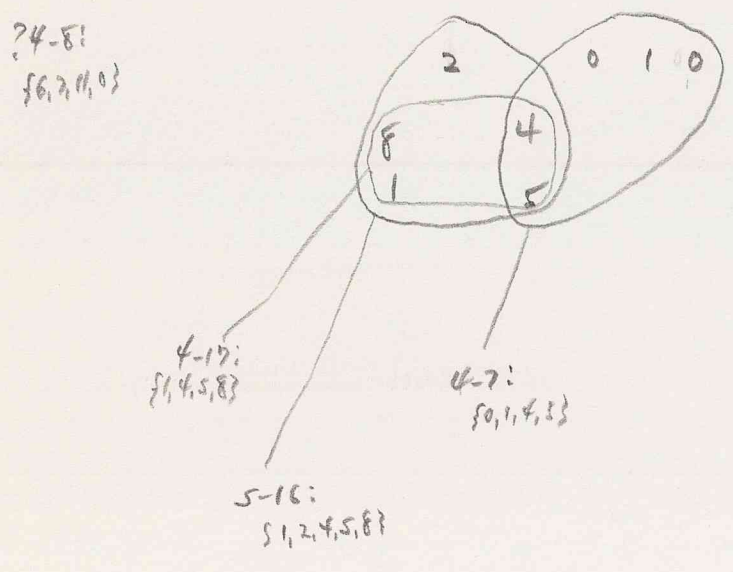 ?4-8:
{6,7,11,0}
2 0 1 0
8 4
1 5
4-17:
{1,4,5,8}
4-7:
{0,1,4,5}
5-16:
{1,2,4,5,8}